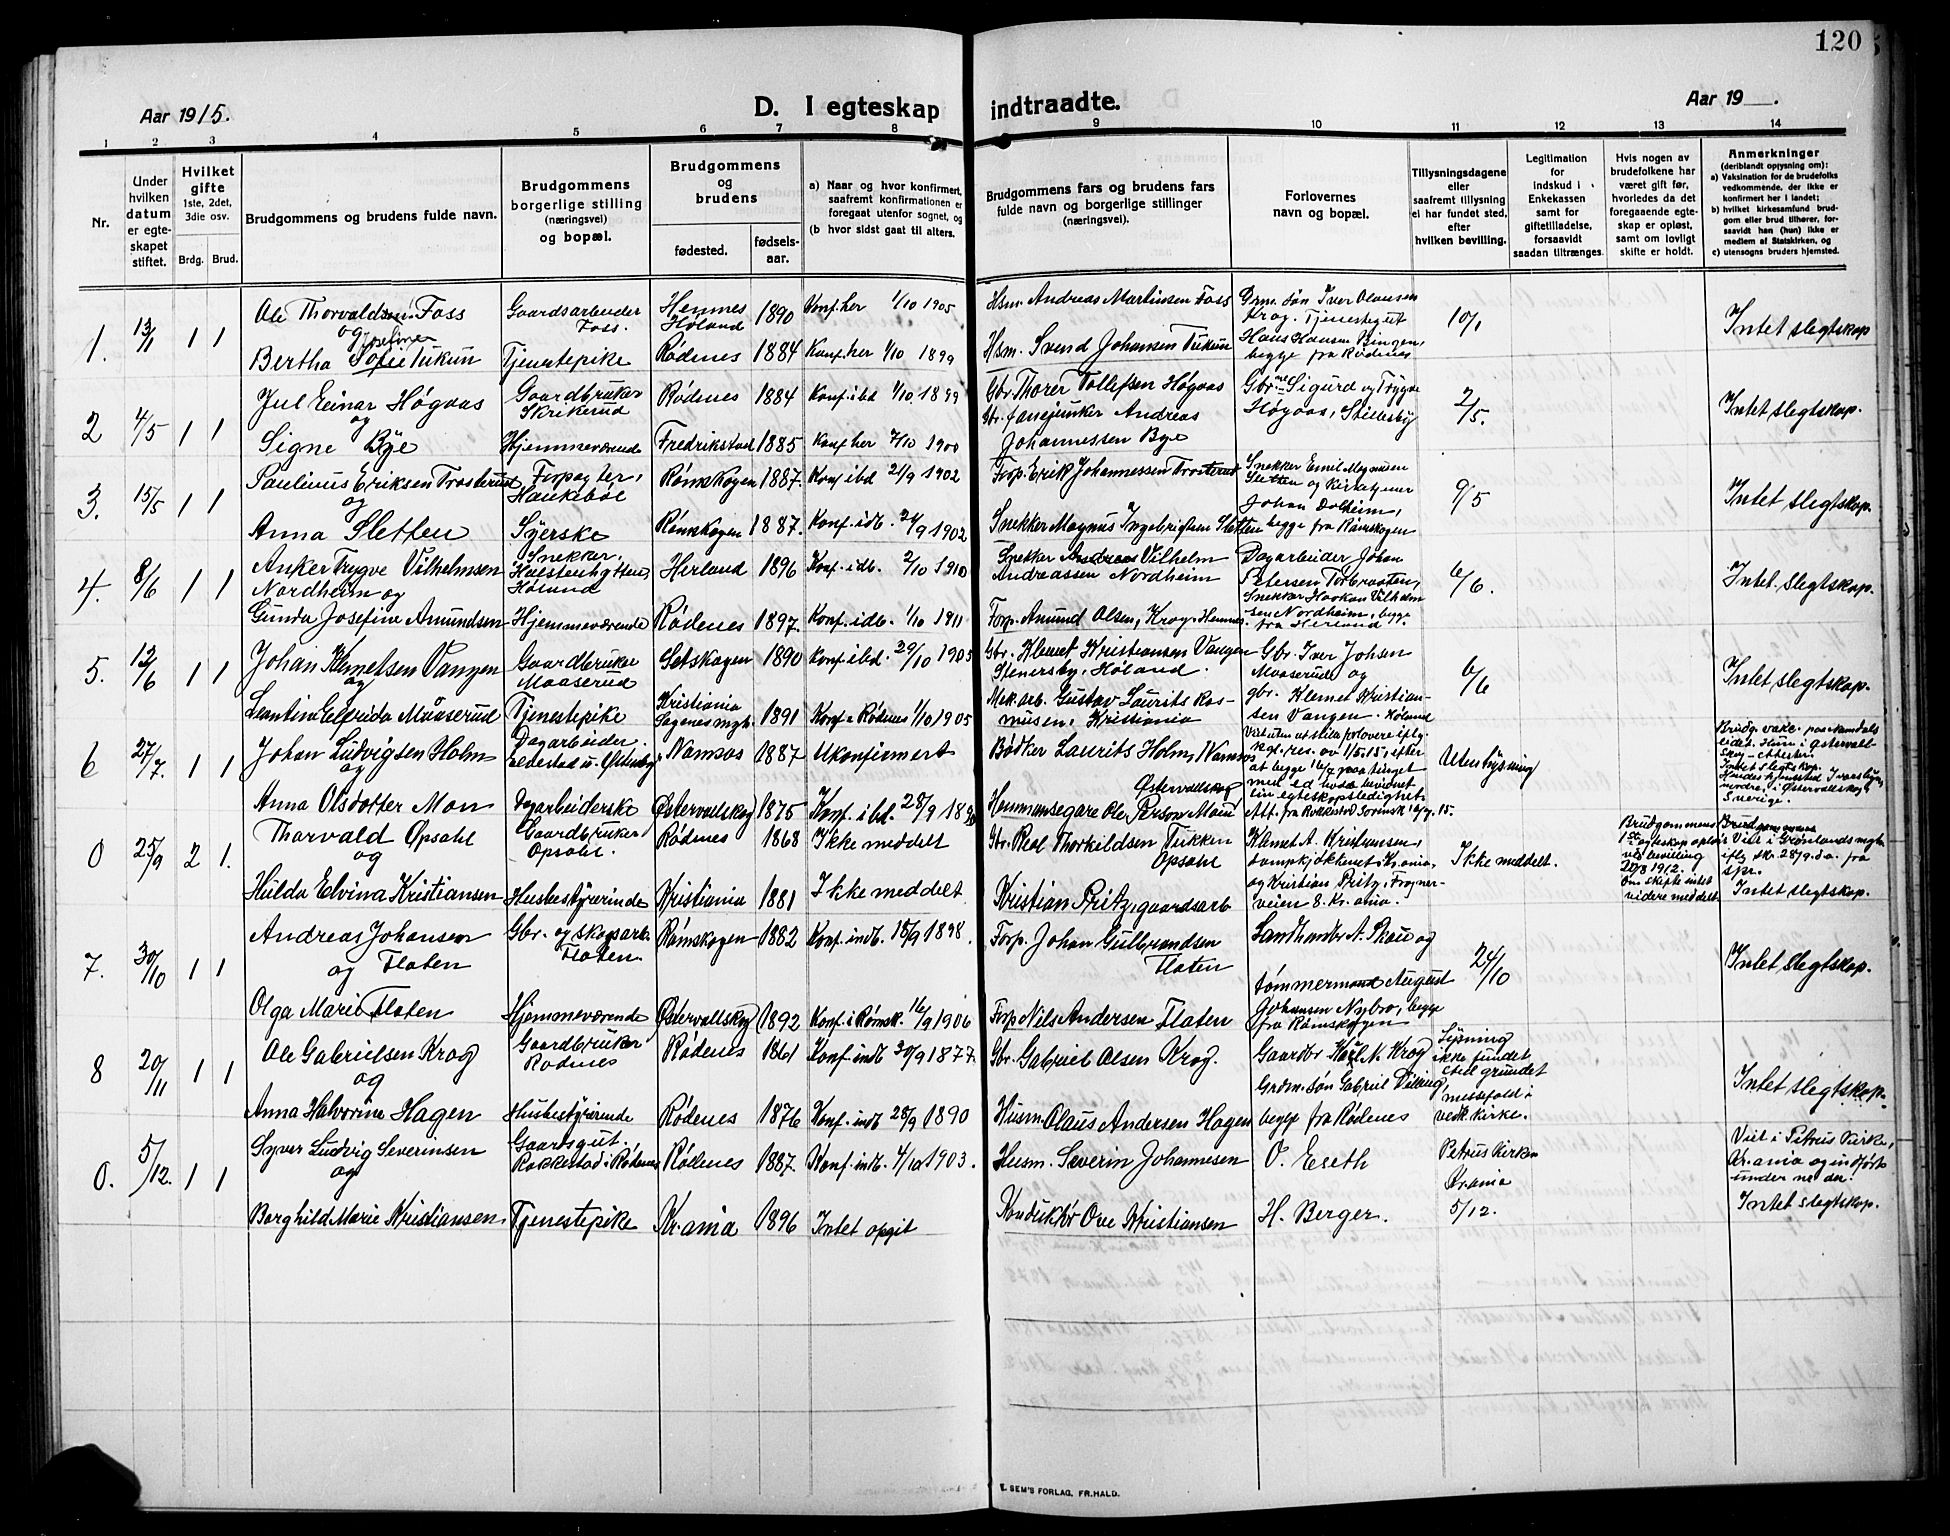 120
Aar 1915.
D. I egteskap indtraadte.
Aar 19 .
1 2 3 4 5 6 7 8 9 10 11 12 13 14
Nr.
Under hvilken datum er egteskapet stiftet.
Hvilket gifte 1ste, 2det, 3die osv.
Brdg. Brud.
Brudgommens og brudens fulde navn.
Brudgommens borgerlige stilling (næringsvei) og bopæl.
Brudgommens og brudens
fødested. fødsels-aar.
a) Naar og hvor konfirmert, saafremt konfirmationen er foregaat utenfor sognet, og
(b hvor sidst gaat til alters.
Brudgommens fars og brudens fars fulde navn og borgerlige stillinger (næringsvei).
Forlovernes navn og bopæl.
Tillysningsdagene eller saafremt tillysning ei har fundet sted, efter hvilken bevilling.
Legitimation for indskud i Enkekassen samt for giftetilladelse, forsaavidt saadan tiltrænges.
Hvis nogen av brudefolkene har været gift før, hvorledes da det foregaaende egteskap er opløst, samt om lovligt skifte er holdt.
Anmerkninger
(deriblandt oplysning om):
a) Vaksination for de brudefolks vedkommende, der ikke er konfirmert her i landet;
b) hvilket kirkesamfund brudgom eller brud tilhører, forsaavidt han (hun) ikke er medlem af Statskirken, og
c) utensogns bruders hjemsted.
1. 13/1 1 1
Ole Thorvaldsen Foss Gaardsarbeider Foss. Hemnes Høland 1890 Konf. her 1/10 1905 Hsm. Andreas Martinsen Foss
og Josefine
Bertha Sofie Tukun Tjenestepike Rødenes 1884 Konf. her 1/10 1899 Hsm. Svend Johansen Tukun
Grm. søn Iver Olausen Krog. Tjenestegut Hans Hansen Bingen, begge fra Rødenes
10/1 Intet slegtskap
2 4/5 1 1
Jul Einar Høgaas Gaardbruker Skrikerud Rødenes 1884 Konf. ibd 1/10 1899 Gbr. Thorer Tollefsen Høgaas
og
Signe Bye Hjemmeværende Fredrikstad 1885 Konf. her 7/10 1900 Andreas Johannessen Bye
Gbr.ne Sigurd og Trygve Høgaas, Stillesby
2/5. Intet slegtskap.
3. 15/5 1 1
Paulinus Eriksen Trosterud Forpagter, Haukebøl Rømskogen 1887. Konf. ibd 21/9 1902 Forp. Erik Johannessen Trosterud
og
Anna Sletten Syerske Rømskogen 1887. Konf. idb. 21/9 1902 Snekker Magnus Ingebrigtsen Sletten
Snekker Emil Magnusen Sletten og Kirketjener Johan Dolheim, begge fra Rømskogen
9/5 Intet slegtskap.
4. 8/6 1 1
Anker Trygve Vilhelmsen Nordheim og Snekker, Høland Herland 1896 Konf. idb. 2/10 1910 Snekker Andreas Vilhelm Andreassen Nordheim
Gunda Josefine Amundsen Hjemmeværende Rødenes 1897. Konf. idb. 1/10 1911 Forp. Amund Olsen, Krog, Hemnes.
Dagarbeider, Johan Petersen Torbraaten, Snekker Haakon Vilhelmsen Nordheim, begge fra Herland
6/6. Intet slegtskap.
5. 12/6 1 1
Johan Klemetsen Vangen Gaardbruker Maaserud Setskogen 1890 Konf. ibd. 29/10 1905 Gbr. Klemet Kristiansen Vangen Stenersby, Høland.
og
Leontine Elfrida Maaserud Tjenestepike Kristiania Sagenes mgh. 1891 Konf. i Rødenes 1/10 1905 Mek. arb. Gustav Laurits Rasmusen. Kristiania
Gbr. Iver Johsen Maaserud og gbr. Klemet Kristiansen Vangen. Høland
6/6 Intet slegtskap.
6 27/7. 1 1
Johan Ludvigsen Holm Dagarbeider. Namsos 1887 Ukonfirmert Bødker Laurits Holm, Namsos
og
Anna Olsdotter Mon Dagarbeiderske Østervallskog 1875 Konf. ibd. 28/9 18 Hemmansegare Ole Person Mon Østervallskog
Viet uten at stille forlovere iflg. kgl. res. av 1/5.15, efter at begge 16/7 paa tinget med ed havde bevidnet sin egteskapsledighet. Att. fra Rokkestad Sorensk. 16/7. 15.
Utenlysning
Intet slegtskap. Sverige.
0 25/9 2 1.
Thorvald Opsahl Gaardbruker Opsahl. Rødenes 1868 Ikke meddelt Gbr. Thorkildsen Tukken Opsahl
og
Hulda Elvina Kristiansen Husbestyrerinde Kristiania 1881 Ikke meddelt Kristian Pritz, gaardsarb
Klemet A. Kristiansen, dampkjøkkenet, Kr.ania. og Kristian Pritz, Frognerveien 8. Kr. ania.
Ikke meddelt.
Brudgommens 1ste egteskap opløst ved bevilling 20/8 1912. Om skifte intet videre meddelt.
Viet i Grønlands mgh. iflg skr. 28/9. d.a. fra spr. Intet slegtskap.
7. 30/10 1 1
Andreas Johansen Gbr. og skogsarb. Flaten. Rømskogen 1882 Konf. indb. 18/9 1898. Forp. Johan Gulbrandsen Flaten
og Flaten
Olga Marie Flaten Hjemmeværende Østervallskog 1892 Konf. i Rømsk. 16/9 1906 Forp. Nils Andersen Flaten
Landhandler A. Skau og tømmermand August Johansen Nybro, begge fra Rømskogen
24/10 Intet slegtskap.
8 20/11 1 1
Ole Gabrielsen Krog Gaardbruker Rødenes Rødenes 1861 Konf. indb. 30/9 1877. Gbr. Gabriel Olsen Krog.
og
Anna Halvorine Hagen Husbestyrerinde Rødenes 1876 Konf. indb 28/9 1890 Husm. Olaus Andersen Hagen
Gaardbr Karl M. Krog Grdm. søn Gabriel Viking, begge fra Rødenes
Lysning ikke fundet sted grundet messefald i vedk. kirke.
Intet slegtskap.
0. 5/12. 1 1
Syver Ludvig Severinsen Gaardsgut. Rakkestad i Rødenes Rødenes 1887. Konf. indb. 4/10 1903. Husm. Severin Johannesen O. Eseth
og
Borghild Marie Kristiansen Tjenestepike Kr.ania 1896 Intet opgit Konduktør Ove Kristiansen H. Berger.
Petrus Kirken Kr.ania 5/12.
Viet i Petrus Kirke, Kr.ania og indført under no der. Intet slegtskap.
E. SEM'S FORLAG, FR.HALD.